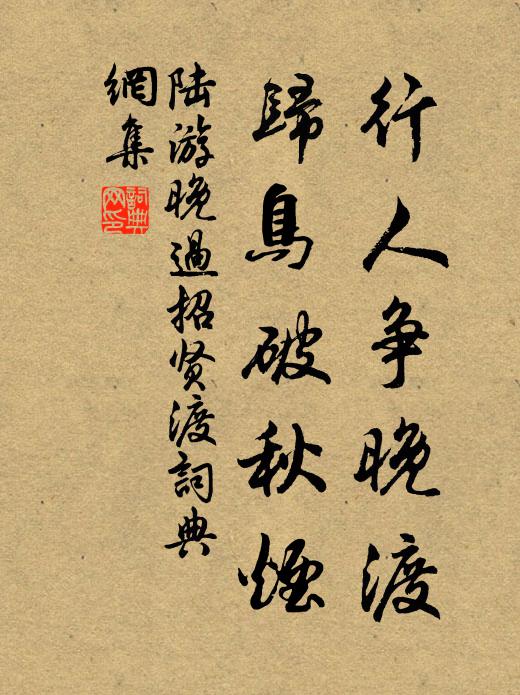 行人争晚渡
歸鳥破秋煙
陆游晚過招贤渡詞典
網集
詞典
网印